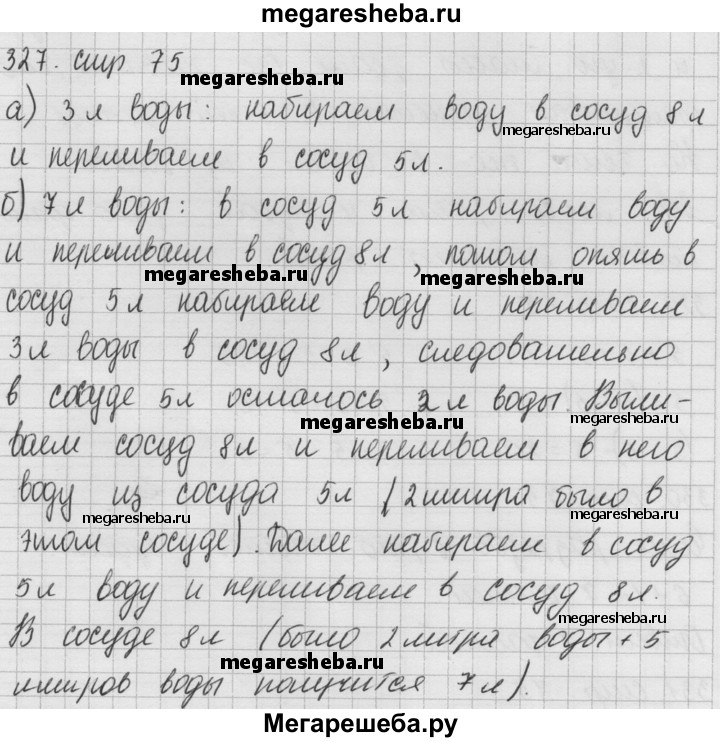 megaresheba.ru
327. стр 75
megaresheba.ru
а) 3 л воды: набираем воду в сосуд 8 л
megaresheba.ru
и переливаем в сосуд 5 л.
б) 7 л воды: в сосуд 5 л набираем воду
и переливаем в сосуд 8 л, потом опять в
megaresheba.ru megaresheba.ru
сосуд 5 л набираем воду и переливаем
3 л воды в сосуд 8 л, следовательно
в сосуде 5 л осталось 2 л воды. Выли-
megaresheba.ru
ваем сосуд 8 л и переливаем в него
воду из сосуда 5 л (2 литра было в
megaresheba.ru megaresheba.ru
этом сосуде). Далее набираем в сосуд
5 л воду и переливаем в сосуд 8 л.
megaresheba.ru
В сосуде 8 л (было 2 литра воды + 5
megaresheba.ru
литров воды получится 7 л).
megaresheba.ru
Мегарешеба.ру